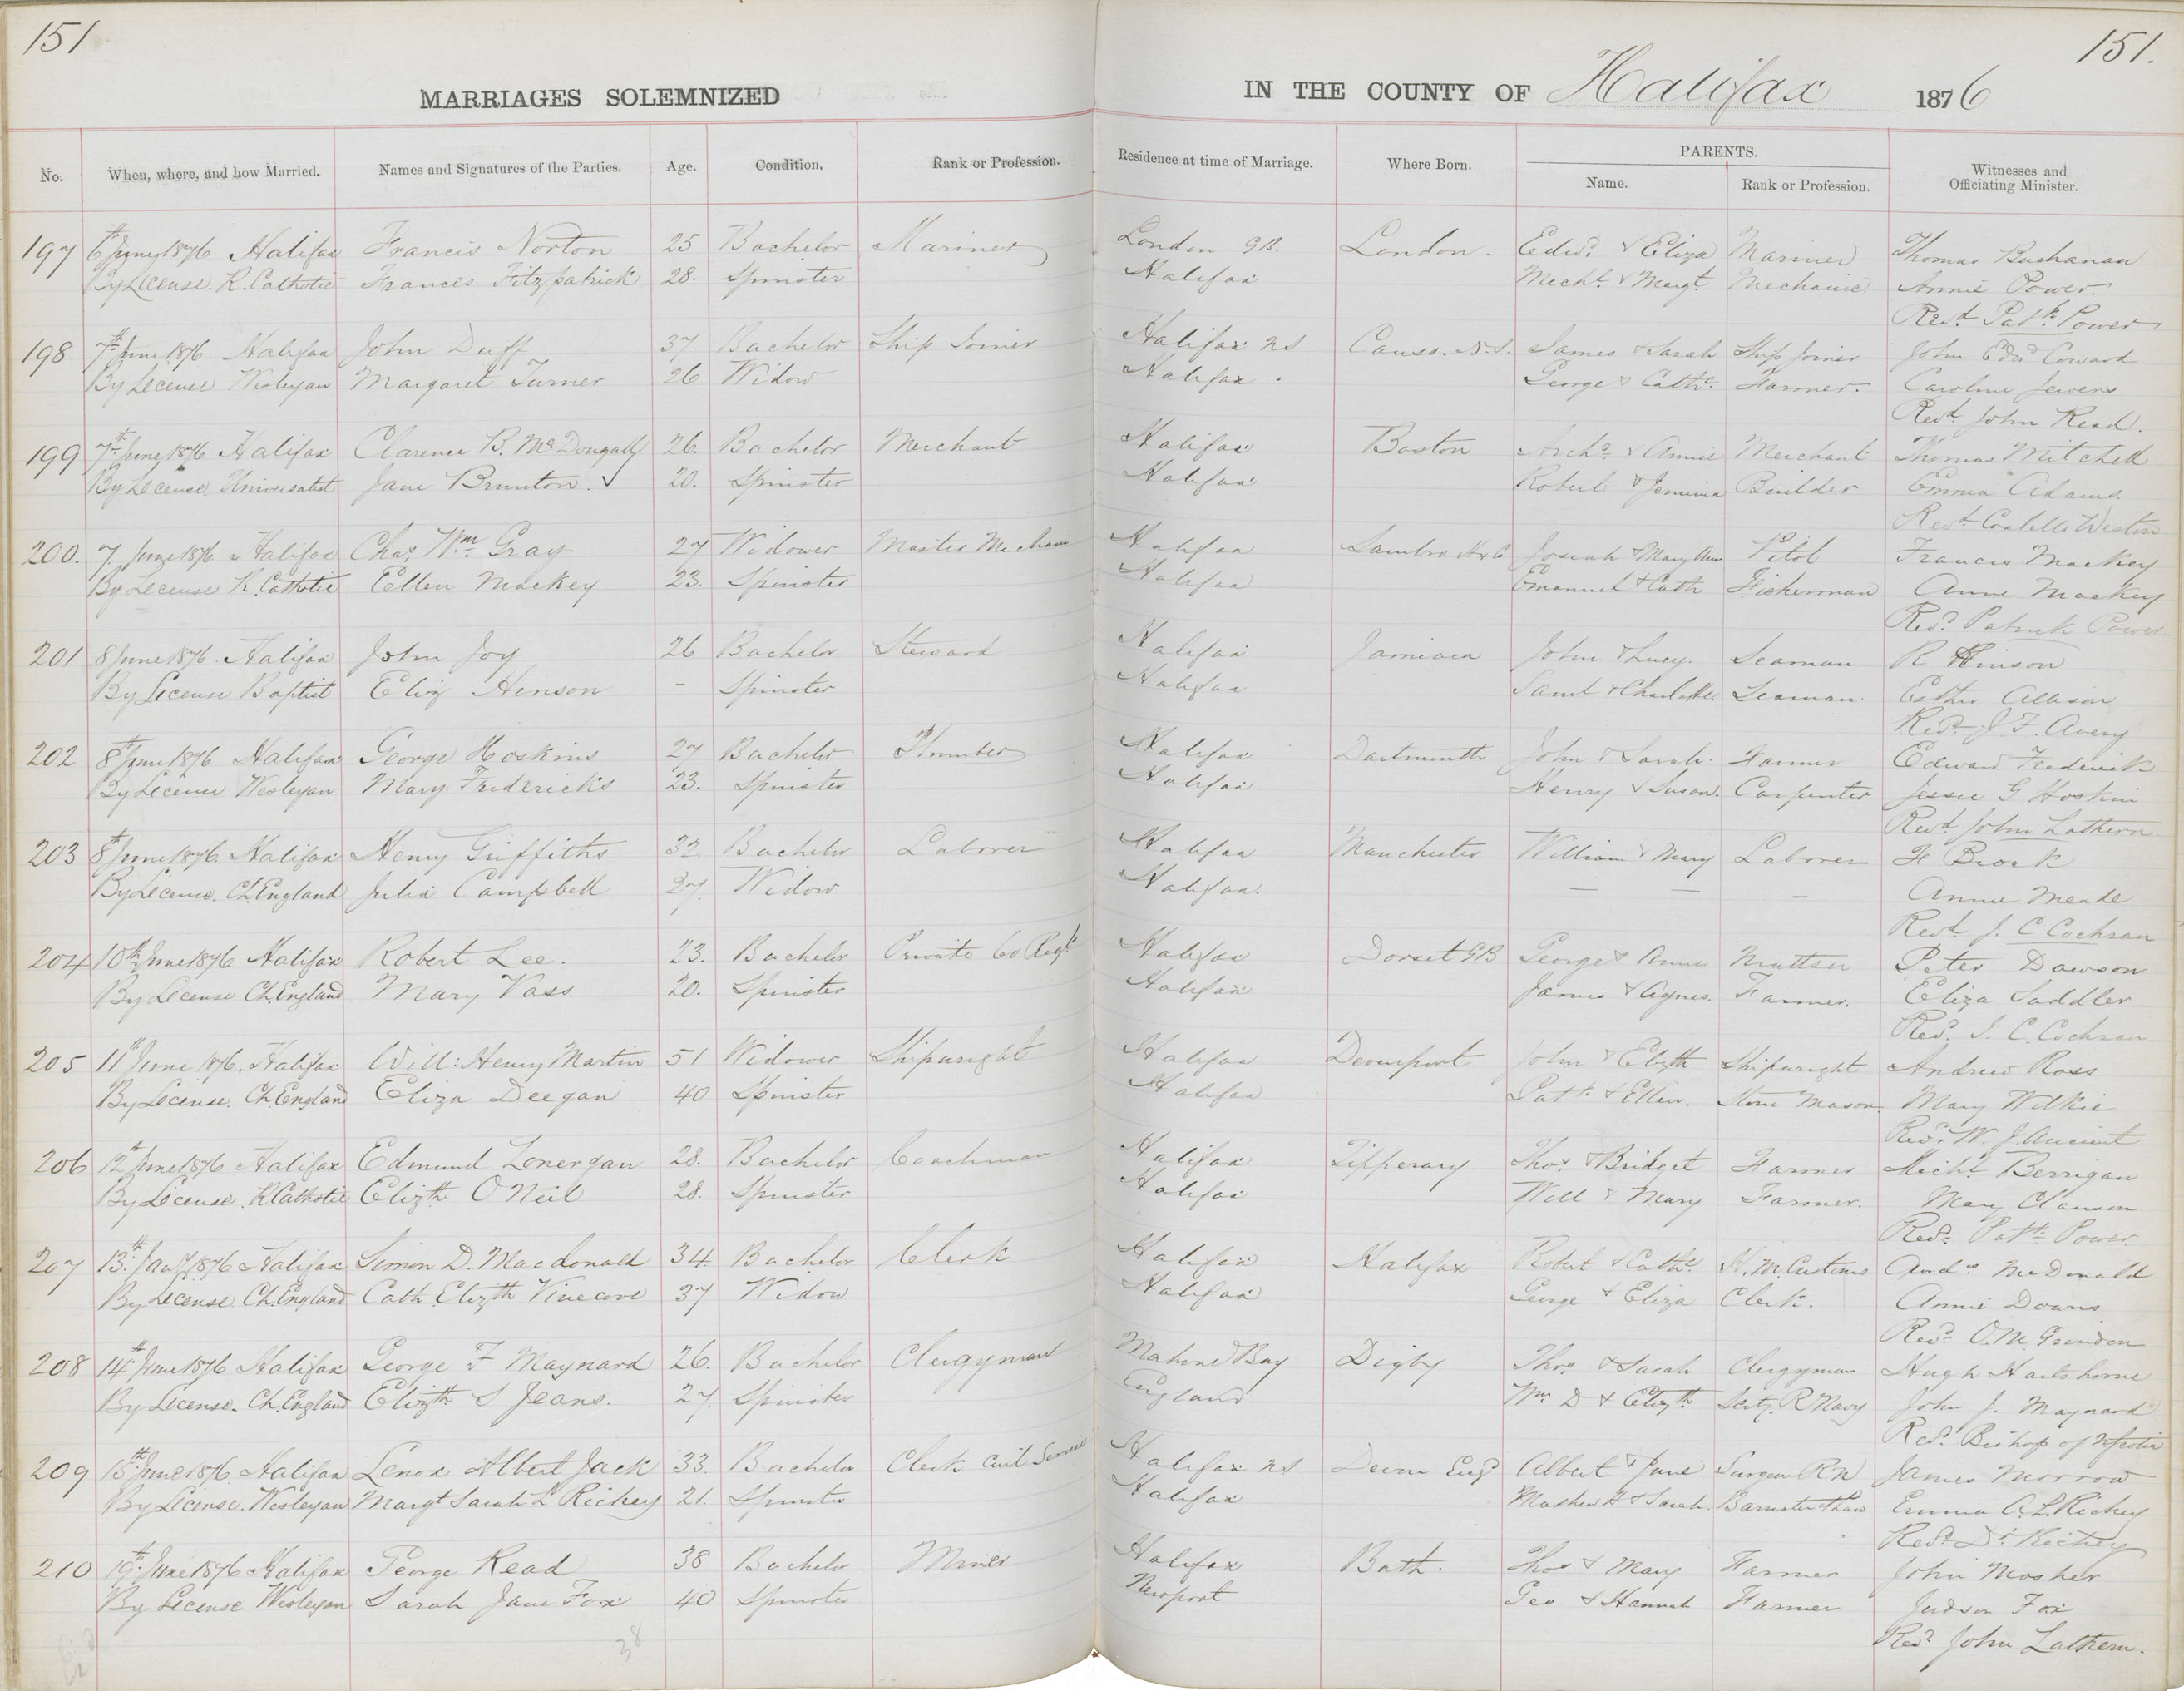 151
151.
MARRIAGES SOLEMNIZED IN THE COUNTY OF Halifax 1876
No. When, where, and how Married. Names and Signatures of the Parties. Age. Condition. Rank or Profession. Residence at time of Marriage. Where Born. PARENTS. Name. Rank or Profession. Witnesses and Officiating Minister.
197 6th June 1876 Halifax Francis Norton 25 Bachelor Mariner London G.B. London. Edwd. & Eliza Mariner Thomas Buchanan
By License. R. Catholic Frances Fitzpatrick 28. Spinster Halifax Mechl. & Margt. Mechanic Annie Power.
Revd. Patk. Power
198 7th June 1876 Halifax John Duff 37 Bachelor Ship Joiner Halifax NS Canso. N.S. James & Sarah Ship Joiner John Edwd Coward
By License Wesleyan Margaret Turner 26 Widow Halifax. George & Cathe. Farmer. Caroline Jewers
Revd. John Read.
199 7th June 1876 Halifax Clarence B. McDougall 26. Bachelor Merchant Halifax Boston Archd. & Annie Merchant Thomas Mitchell
By License. Universalist Jane Brunton. 20. Spinster Halifax Robert & Jemima Builder Emma Adams.
Revd. Costello Weston
200. 7 June 1876 Halifax Chas. Wm. Gray 27 Widower Master Mechanic Halifax Sambro Josiah & Mary Ann Pilot Francis Mackey
By License R. Catholic Ellen Mackey 23. Spinster Halifax Emanuel & Cath Fisherman Anne Mackey
Revd. Patrick Power
201 8 June 1876. Halifax John Joy 26 Bachelor Steward Halifax Jamiaca John & Lucy. Seaman R Hinson
By License Baptist Eliz Henson - Spinster Halifax Saml & Charlotte. Seaman. Esther Allison
Revd. J. F. Avery
202 8th June 1876 Halifax George Hoskins 27 Bachelor Plumber Halifax Dartmouth John & Sarah. Farmer Edward Frederick
By License Wesleyan Mary Fredericks 23. Spinster Halifax Henry & Susan. Carpenter Jessie G Hoskin
Revd. John Lathern
203 8th June 1876. Halifax Henry Griffiths 32. Bachelor Laborer Halifax Manchester William & Mary Laborer H Brock
By License. Ch. England Julia Campbell 27. Widow Halifax. — — — Annie Meade
Revd. J. C Cochran
204 10th June 1876 Halifax Robert Lee. 23. Bachelor Private 60 Regt Halifax Dorset GB George & Anne Peter Dawson
By License Ch. England Mary Vass. 20. Spinster Halifax James & Agnes. Farmer. Eliza Saddler
Revd. J. C. Cochran.
205 11th June 1876. Halifax Will: Henry Martin 51 Widower Shipwright Halifax Devenport John & Elizth Shipwright Andrew Ross
By License. Ch. England Eliza Deegan 40 Spinster Halifax Patk. & Ellen. Stone Mason. Mary Wilkie
Revd. W. J. Ancient
206 12th June 1876 Halifax Edmund Lonergan 28. Bachelor Coachman Halifax Tipperary Thos. & Bridget Farmer Michl. Berrigan
By License. R Catholic Elizth O Neil 28. Spinster Halifax Will & Mary Farmer. Mary Clanson
Revd. Patk. Power.
207 13th Jany 1876 Halifax Simon D. Macdonald 34. Bachelor Clerk Halifax Halifax Robert & Cathe. H. M. Customs Andw McDonald
By License Ch. England Cath. Elizth Vinecove 37 Widow Halifax George & Eliza Clerk. Annie Downs
Revd. O. M. Grindon
208 14th June 1876 Halifax George F Maynard 26. Bachelor Clergyman Mahone Bay Digby Thos. & Sarah Clergyman Hugh Hartshorne
By License. Ch. England Elizth S Jeans. 27. Spinster England Wm. D & Elizth. R Navy John J. Maynard
Revd. Bishop of N Scotia
209 15th June 1876. Halifax Lenox Albert Jack 33. Bachelor Clerk Civil Service Halifax NS Devon Engd Albert & Jane Surgeon RN James Morrow
By License. Wesleyan Margt Sarah L Richey 21. Spinster Halifax Mathew H & Sarah. Barrister Emma A. L. Richey
Revd. Dr. Richey
210 19th June 1876 Halifax George Read 38 Bachelor Miner Halifax Bath. Thos & Mary Farmer John Mosher
By License Wesleyan Sarah Jane Fox 40 Spinster Newport Geo & Hannah Farmer Judson Fox
Revd. John Lathern.
38